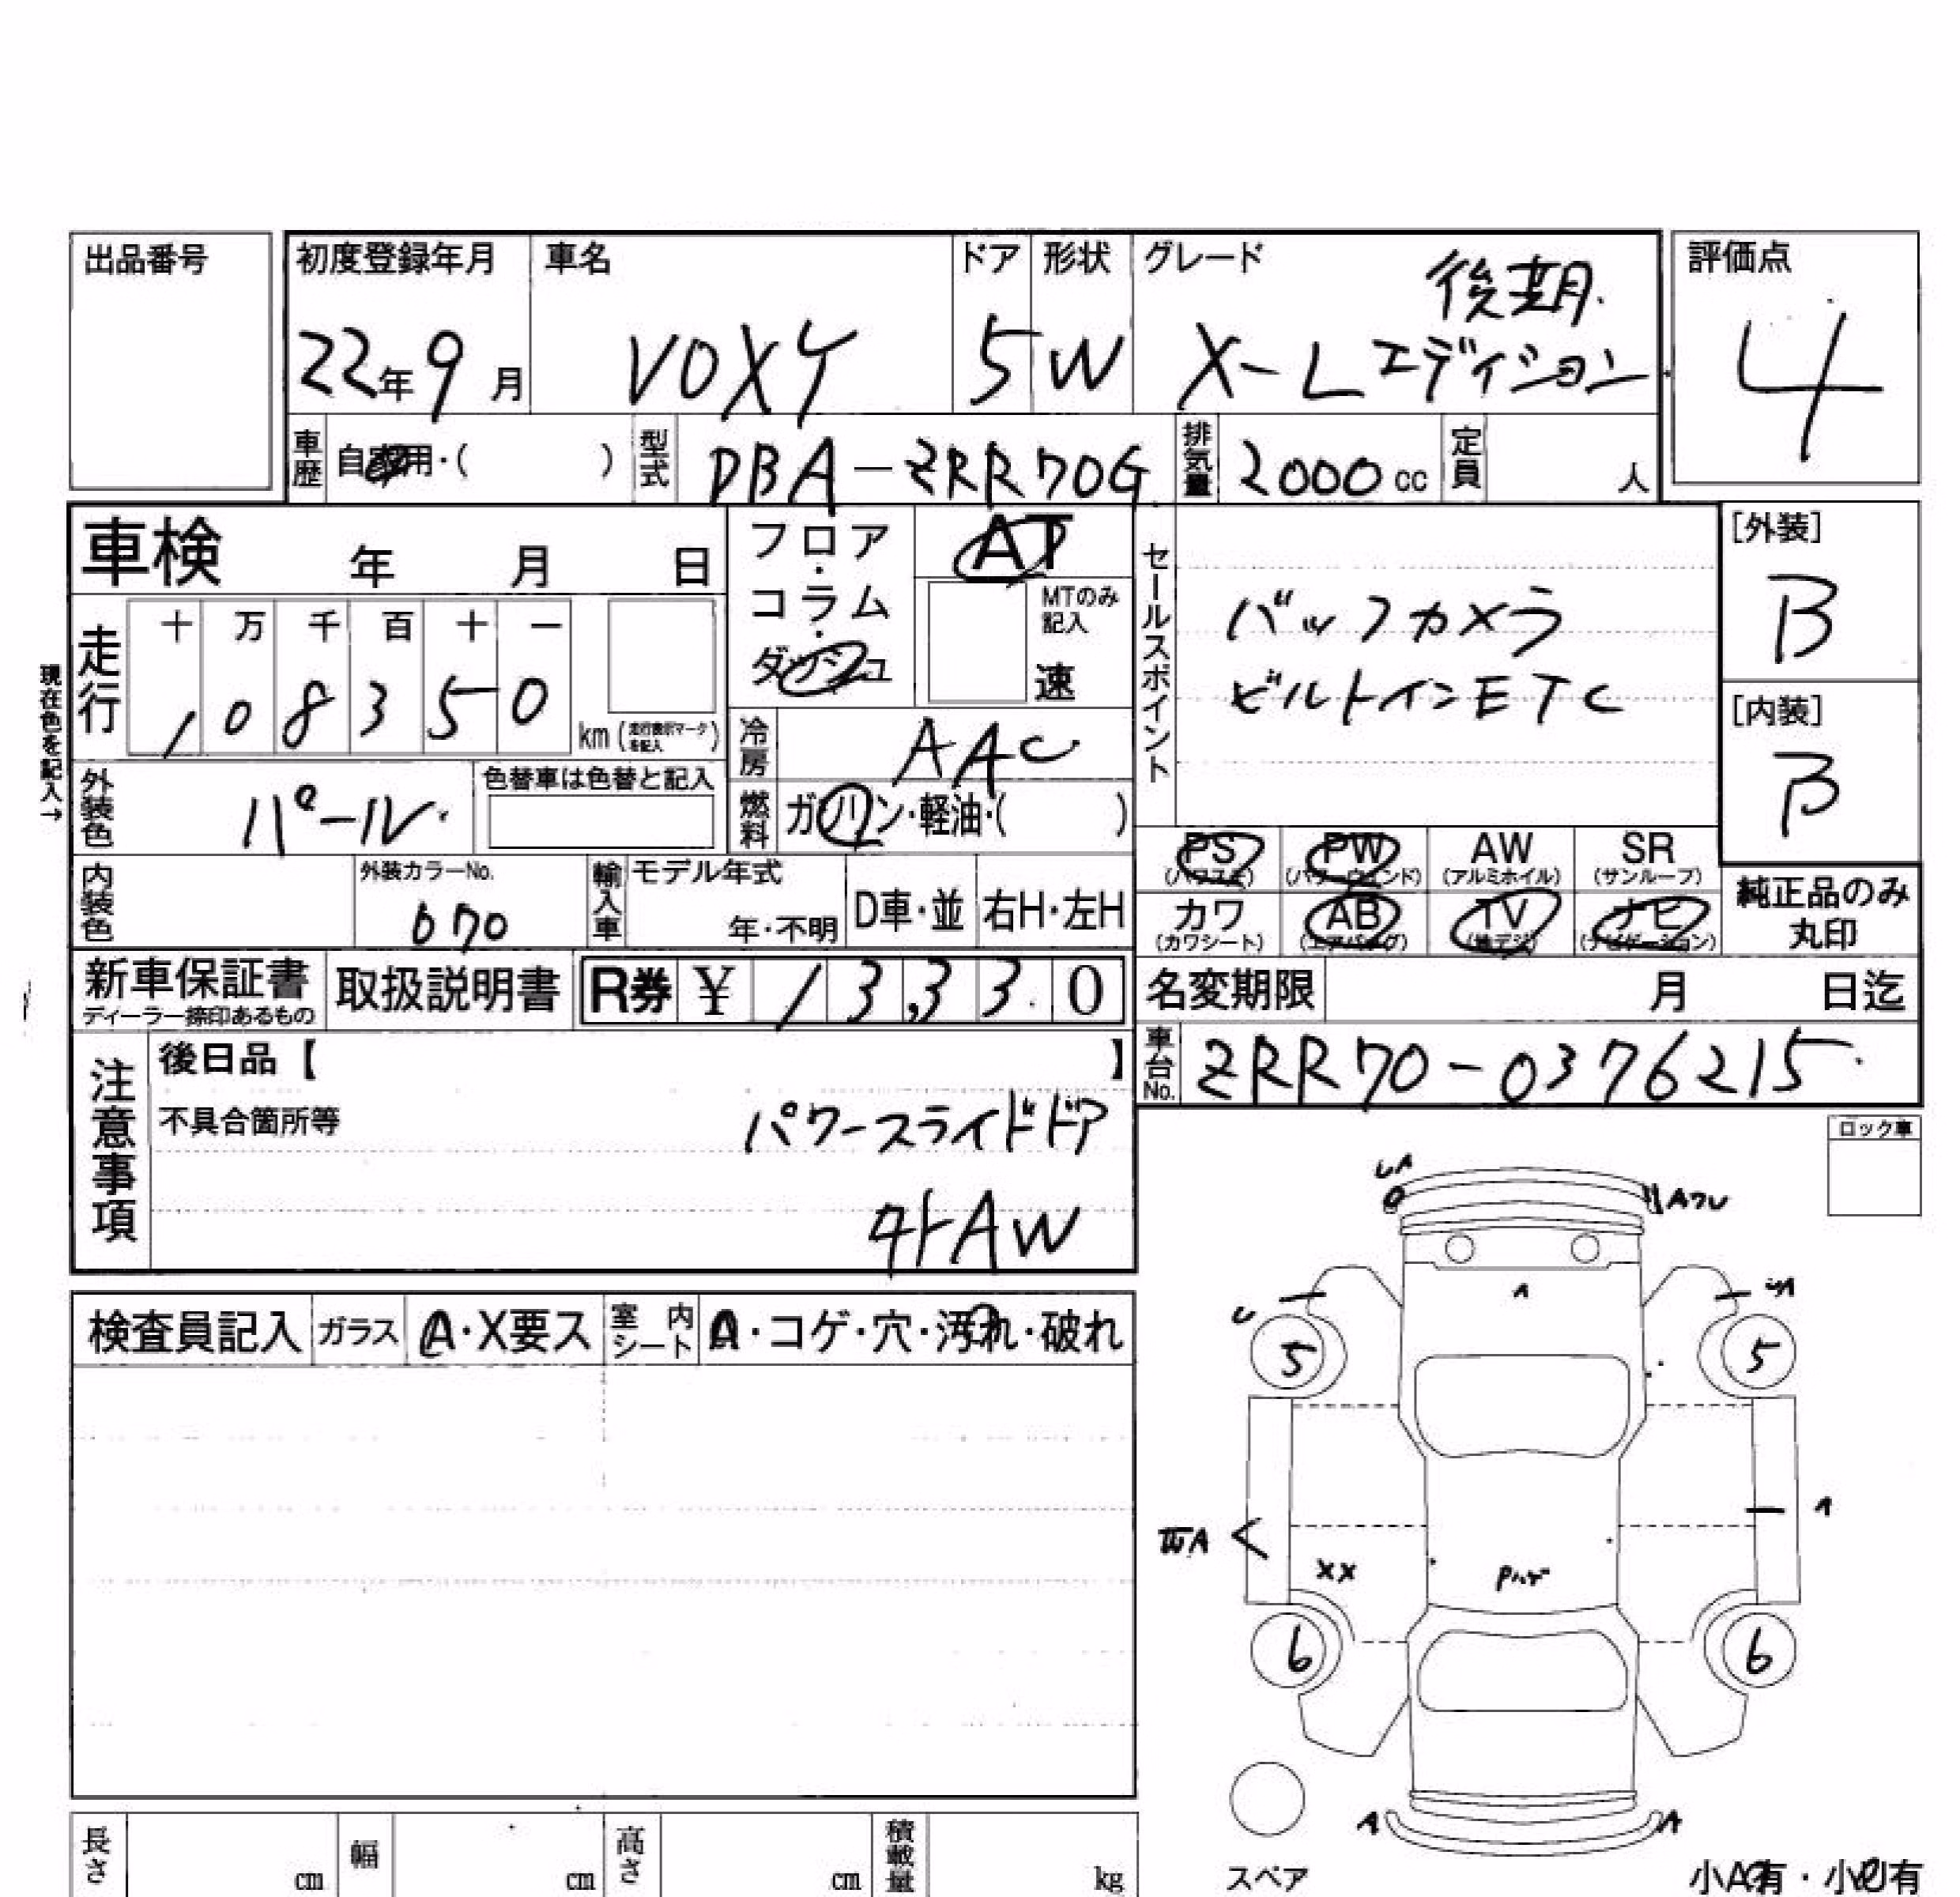 出品番号
初度登録年月 車名 ドア 形状 グレード 評価点
後期
22年9月 VOXY 5 W X-Lエディション 4
車歴 自家用・( ) 型式 DBA-ZRR70G 排気量 2000cc 定員 人
車検 年 月 日
フロア・コラム・ダッシュ AT
MTのみ記入 速
セールスポイント
バックカメラ
ビルトインETC
[外装]
B
[内装]
B
現在色を記入→
走行 十 万 千 百 十 一
1 0 8 3 5 0 km (走行表示マークを記入)
冷房 AAC
外装色 パール 色替車は色替と記入
燃料 ガソリン・軽油・( )
PS (パワステ) PW (パワーウィンド) AW (アルミホイル) SR (サンルーフ)
カワ (カワシート) AB (エアバッグ) TV (地デジ) ナビ (ナビゲーション)
純正品のみ
丸印
内装色 外装カラーNo. 070 輸入車 モデル年式 年・不明 D車・並 右H・左H
新車保証書 ディーラー捺印あるもの 取扱説明書 R券 ¥ 13,330
名変期限 月 日迄
車台No. ZRR70-0376215
注意事項
後日品【 】
不具合箇所等
パワースライドドア
外AW
ロック車
検査員記入 ガラス A・X要ス 室内シート A・コゲ・穴・汚れ・破れ
UA
A
U
5 5
A
XX
Pハゲ
6 6
A A
スペア
小A有・小U有
長さ cm 幅 cm 高さ cm 積載量 kg